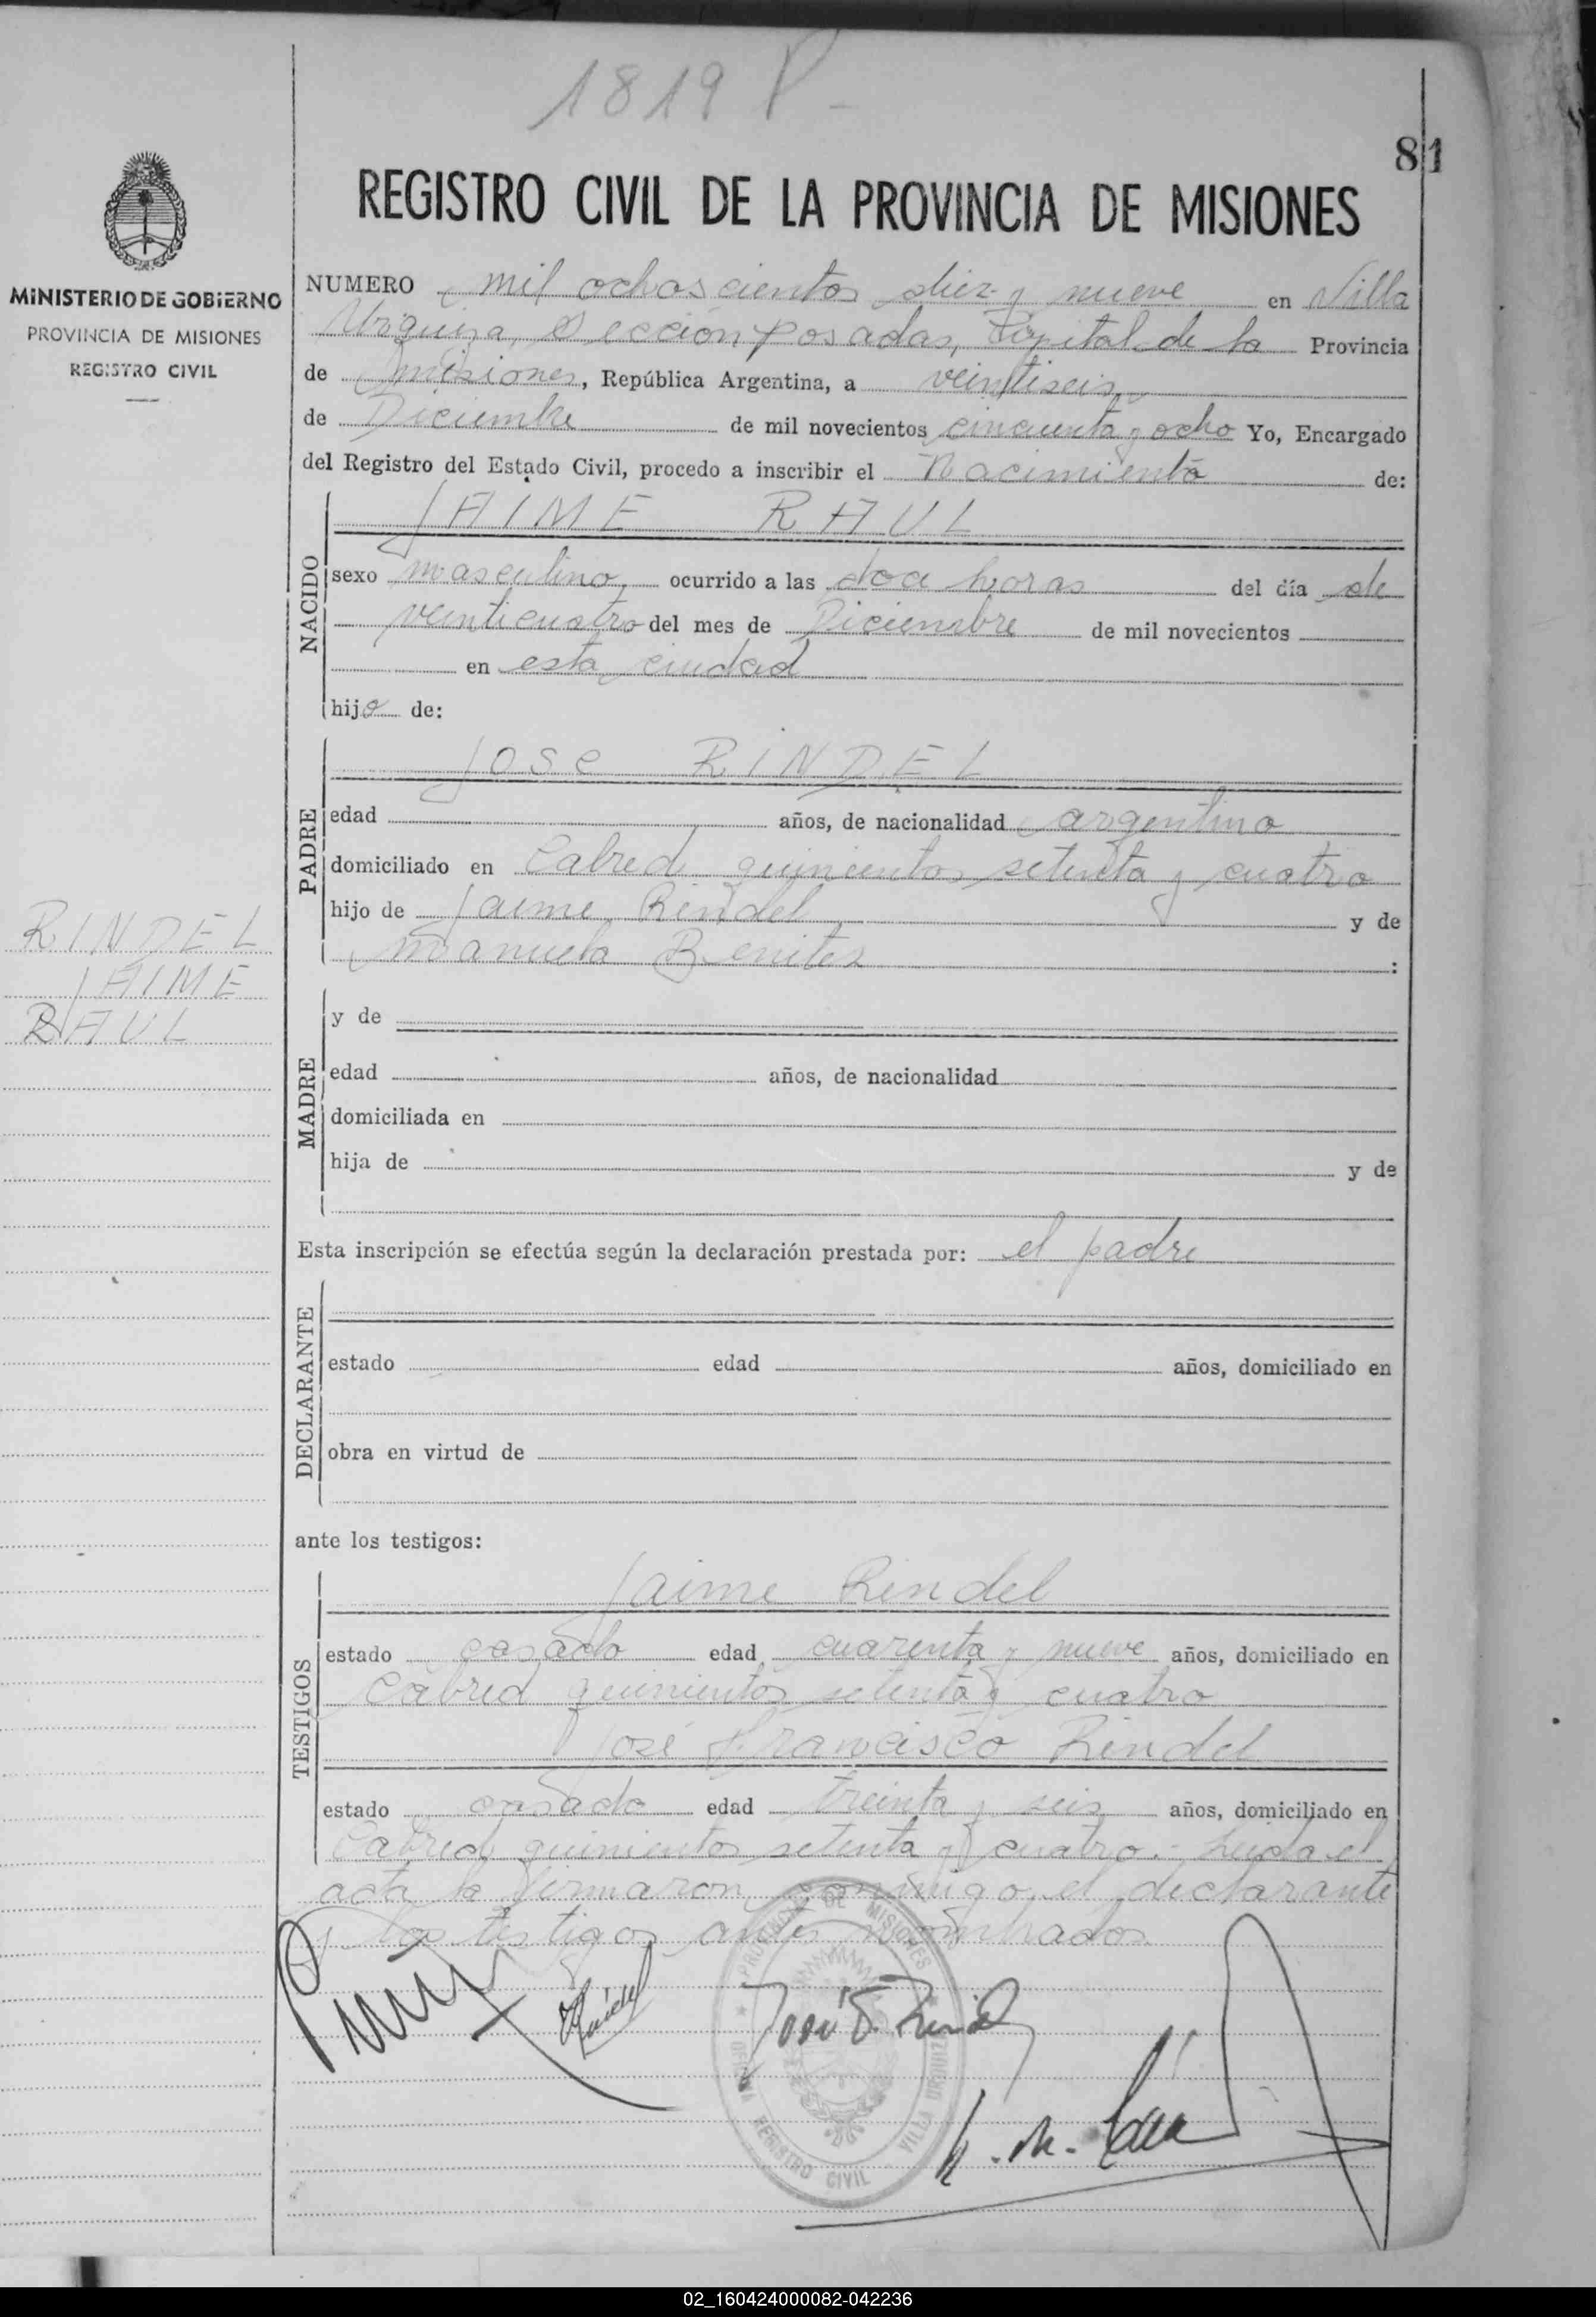 1819 P-
81
REGISTRO CIVIL DE LA PROVINCIA DE MISIONES
MINISTERIO DE GOBIERNO
PROVINCIA DE MISIONES
REGISTRO CIVIL
NUMERO mil ochoscientos diez y nueve en Villa
Urquiza, Sección Posadas, Capital de la Provincia
de Misiones, República Argentina, a veintiseis
de Diciembre de mil novecientos cincuenta y ocho Yo, Encargado
del Registro del Estado Civil, procedo a inscribir el Nacimiento de:
NACIDO
JAIME RAUL
sexo masculino, ocurrido a las doce horas del día de
veinticuatro del mes de Diciembre de mil novecientos
en esta ciudad
hijo de:
PADRE
Jose RINDEL
edad años, de nacionalidad argentino
domiciliado en Cabred quinientos setenta y cuatro
hijo de Jaime Rindel y de
Manuela Benitez :
RINDEL
JAIME
RAUL
MADRE
y de
edad años, de nacionalidad
domiciliada en
hija de y de
Esta inscripción se efectúa según la declaración prestada por: el padre
DECLARANTE
estado edad años, domiciliado en
obra en virtud de
ante los testigos:
TESTIGOS
Jaime Rindel
estado casado edad cuarenta y nueve años, domiciliado en
Cabred quinientos setenta y cuatro
José Francisco Rindel
estado casado edad treinta y seis años, domiciliado en
Cabred quinientos setenta y cuatro. Leída el
acta la firmaron conmigo el declarante
y los testigos antes nombrados
PROVINCIA DE MISIONES
OFICINA REGISTRO CIVIL VILLA URQUIZA
José F. Rindel
02_160424000082-042236